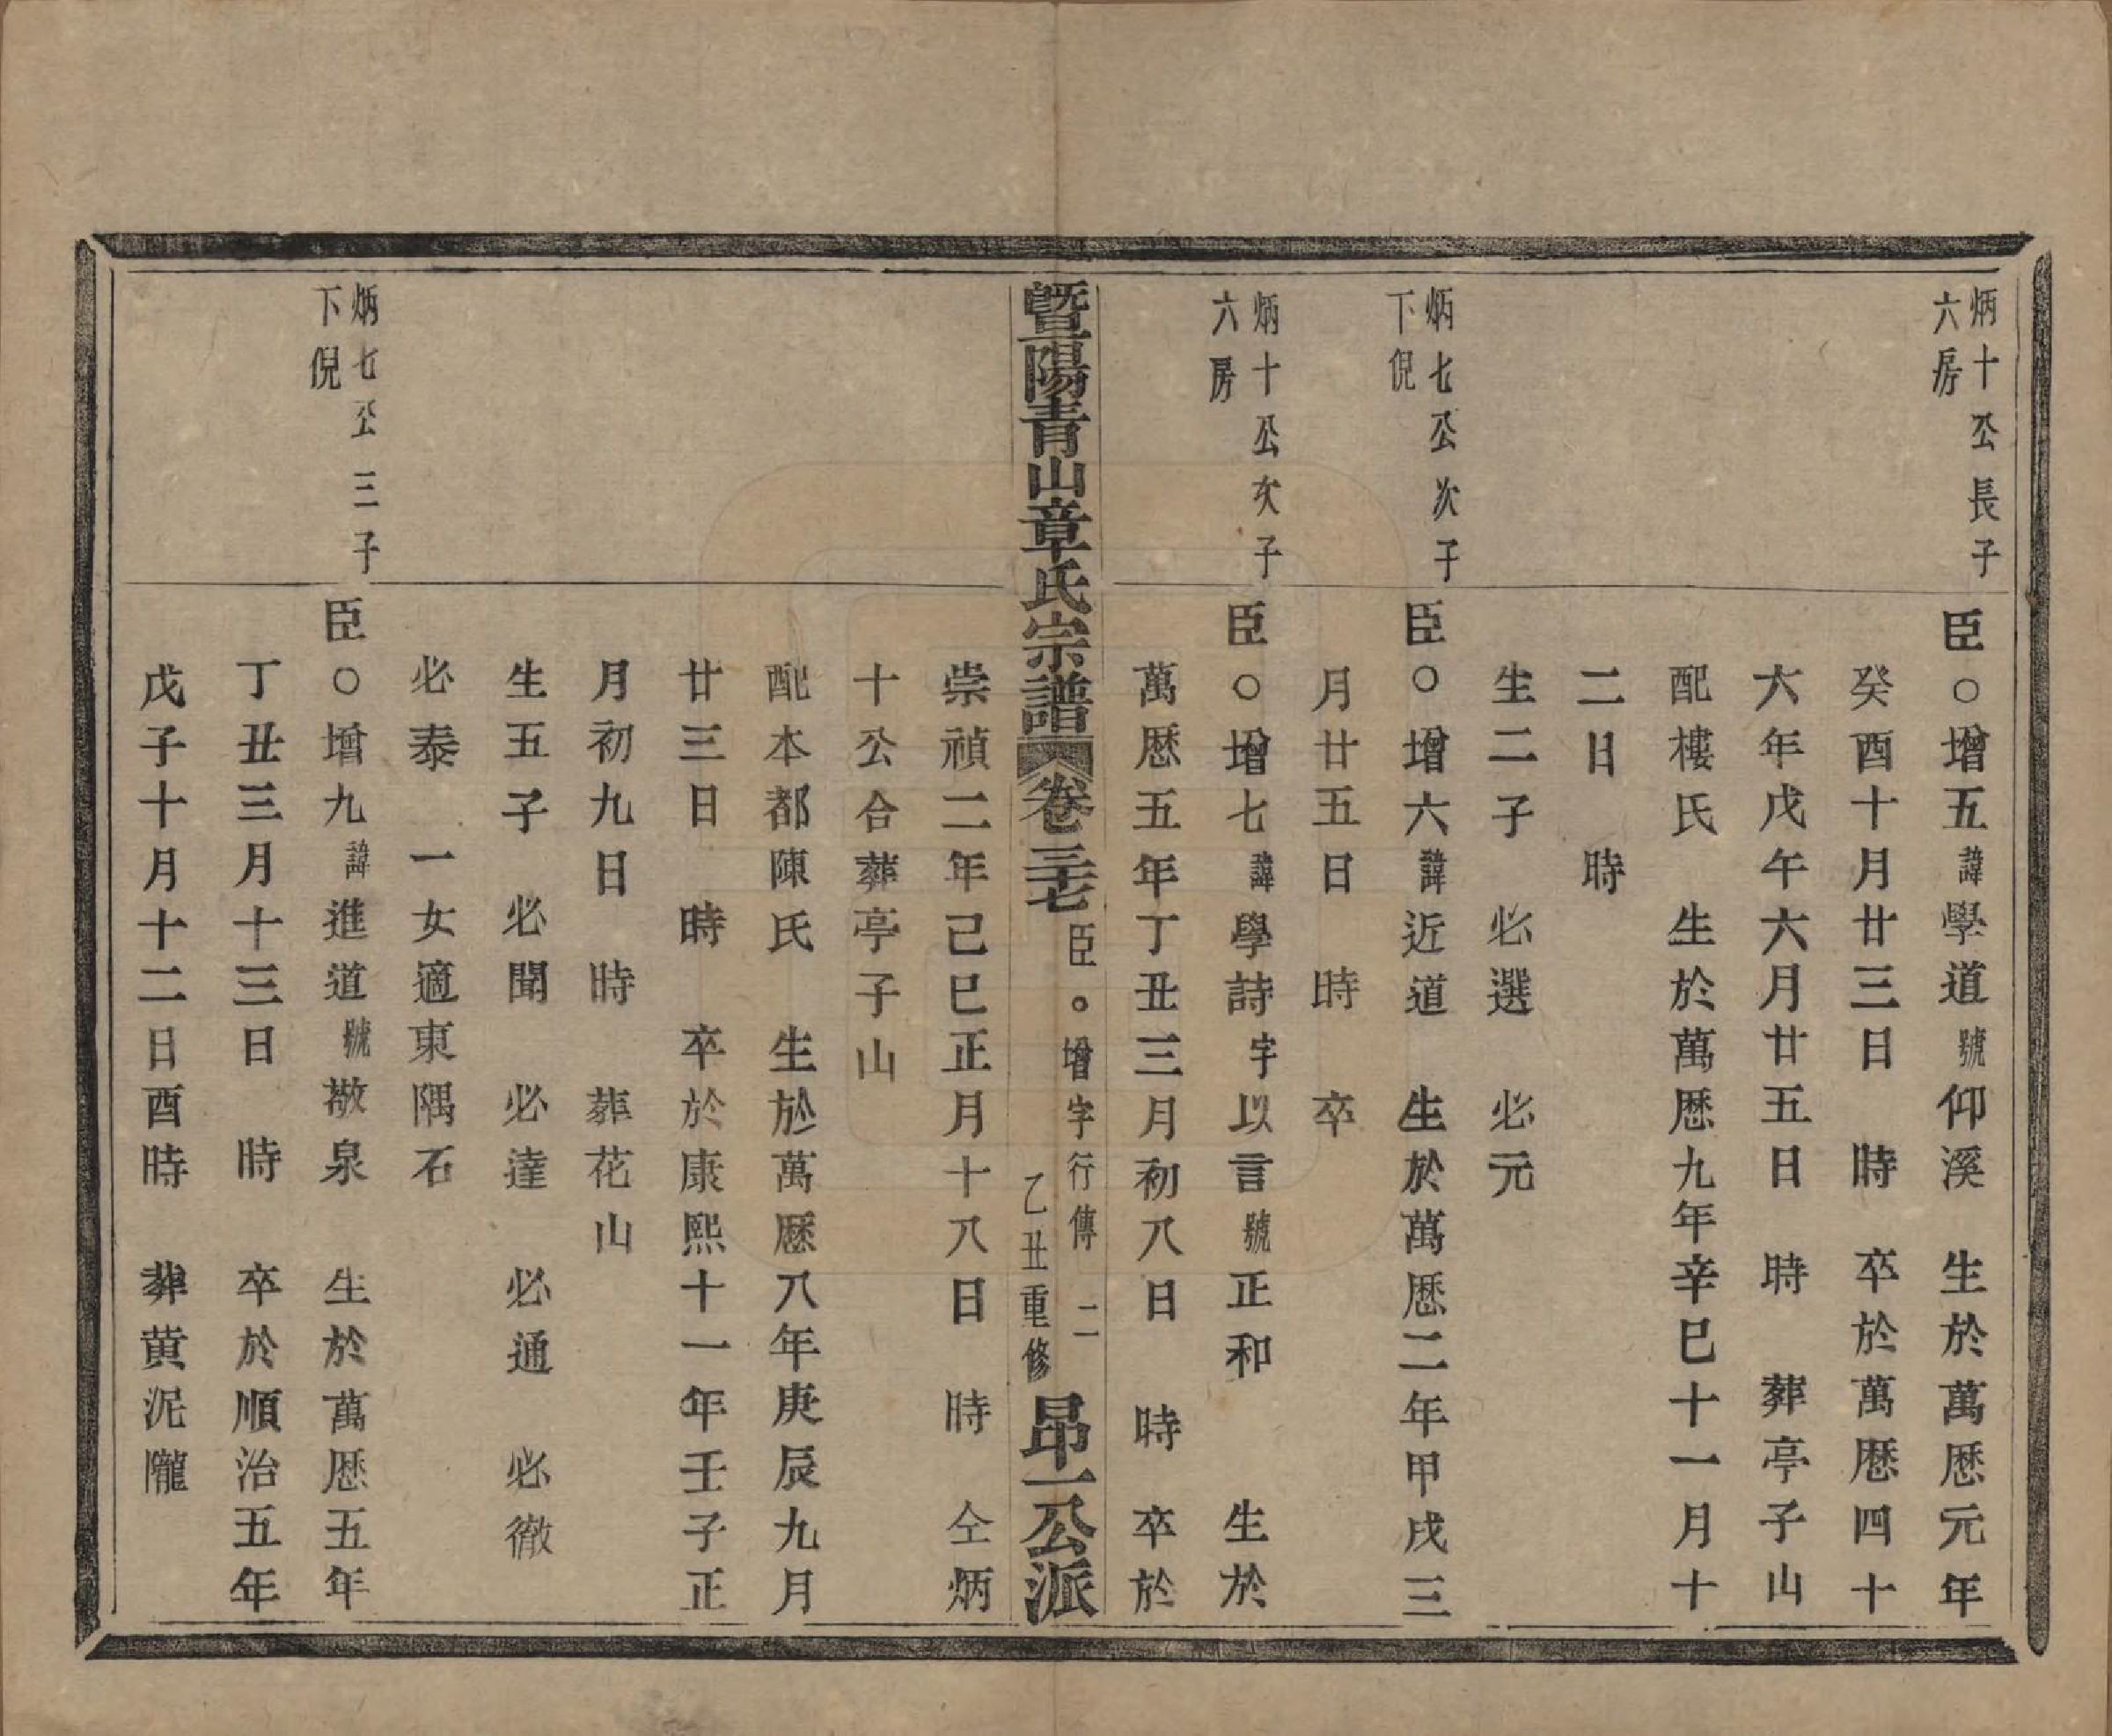 炳十公長子
六房
臣○增五諱學道號仰溪　生於萬歴元年
癸酉十月廿三日　時　卒於萬歴四十
六年戊午六月廿五日　時　葬亭子山
配樓氏　生於萬歴九年辛巳十一月十
二日　時
生二子　必選　必元
炳七公次子
下倪
臣○增六諱近道　生於萬歴二年甲戌三
月廿五日　時　卒
炳十公次子
六房
臣○增七諱學詩字以言號正和　生於
萬歴五年丁丑三月初八日　時　卒於
暨陽青山章氏宗譜　卷三十七　臣○增字行傳　二　乙丑重修　昂一公派
崇禎二年己巳正月十八日　時　仝炳
十公合葬亭子山
配本都陳氏　生於萬歷八年庚辰九月
廿三日　時　卒於康熙十一年壬子正
月初九日　時　葬花山
生五子　必聞　必達　必通　必徹
必泰　一女適東隅石
炳七公三子
下倪
臣○增九諱進道號敬泉　生於萬歴五年
丁丑三月十三日　時　卒於順治五年
戊子十月十二日酉時　葬黄泥隴